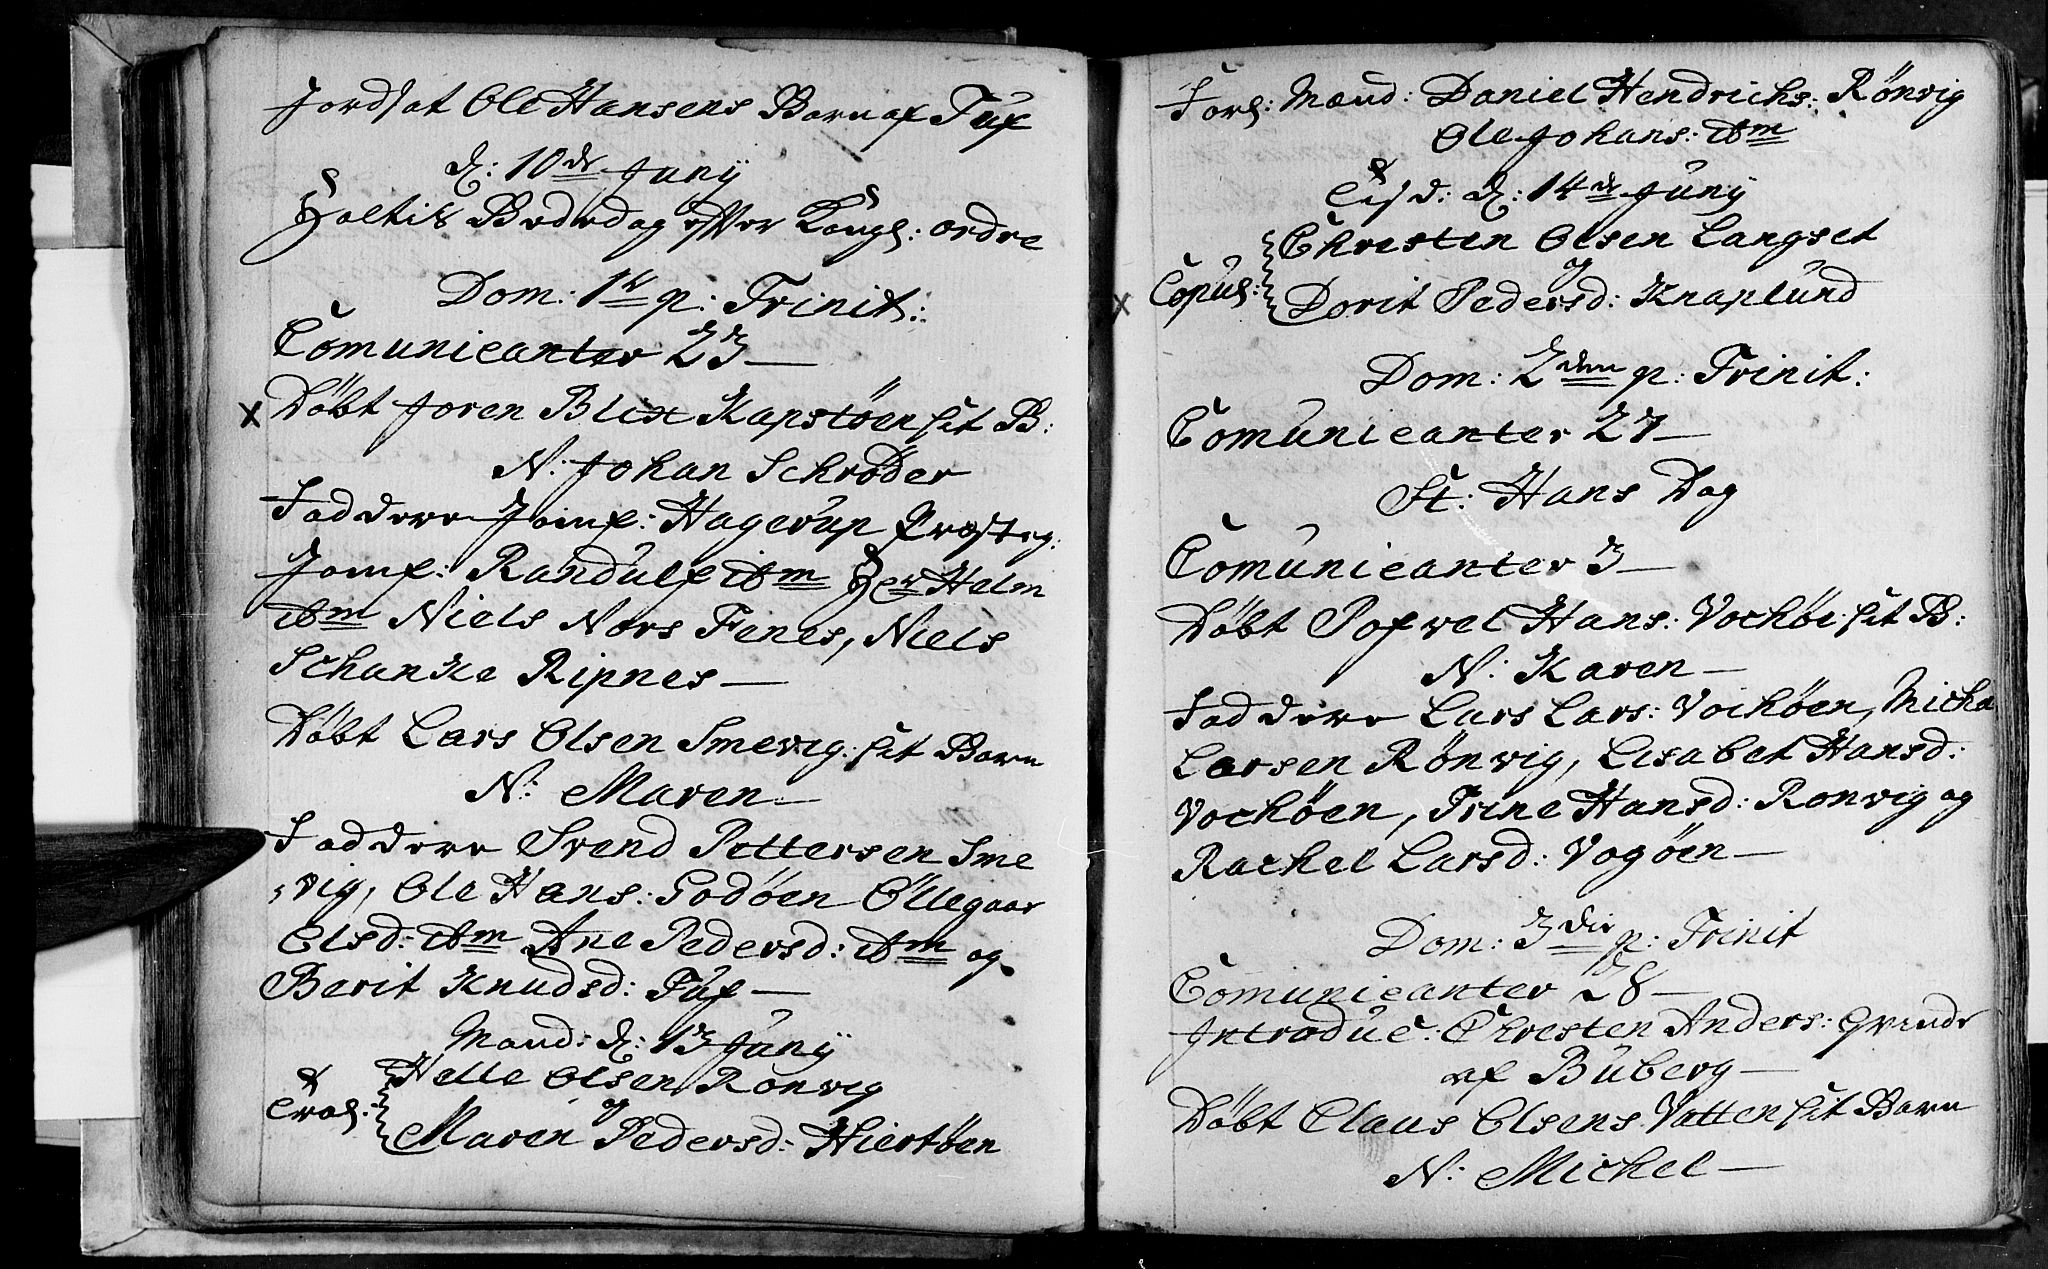 Jordsat Ole Hansens Barn af Tuf
d: 10de Juny
Holtis Bededag efter Kongl: ordre
Dom: 1te p: Trinit:
Comunicanter 23 —
Döbt Joren Blix Kapstöen sit B:
N: Johan Schrøder
Faddere Jomf: Hagerup Præsteg:
Jomf: Randulf ibm Her Helm
ibm Niels Nors Fenes, Niels
Schanke Ripnes —
Döbt Lars Olsen Smevig: sit Barn
N: Maren —
Faddere Svend Pettersen Sme
vig, Ole Hans: Godöen Öllegaar
Olsd: ibm Ane Pedersd: ibm og
Berit Knudsd: Tuf —
Mand: d: 13 Juny
Helle Olsen Rönvig
Trol: og
Maren Pedersd: Hiertöen
Forl: Mænd: Daniel Hendrichs: Rönvig
Ole Johans: ibm
Tisd: d: 14de Juny
Christen Olsen Langset
Copul: og
Dorit Pedersd: Knaplund
Dom: 2den p: Trinit:
Comunicanter 27 —
St: Hans Dag
Comunicanter 3 —
Döbt Pofvel Hans: Vochöe: sit B:
N: Karen —
Faddere Lars Lars: Vochöen, Micha
Larsen Rönvig, Lisabet Hansd:
Vochöen, Trine Hansd: Ronvig og
Rachel Larsd: Vogöen —
Dom: 3die p: Trinit
Comunicanter 28 —
Introduc: Christen Anders: Qvinde
af Buberg —
Döbt Claus Olsens Vatten sit Barn
N: Michel —